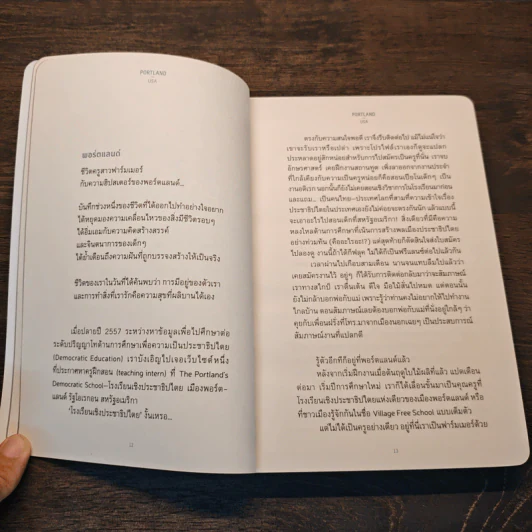 PORTLAND
USA
พอร์ตแลนด์
ชีวิตครูสาวฟาร์มเมอร์
กับความฮิปสเตอร์ของพอร์ตแลนด์...
บันทึกช่วงหนึ่งของชีวิตที่ได้ออกไปทำอย่างใจอยาก
ได้หยุดมองความเคลื่อนไหวของสิ่งมีชีวิตรอบๆ
ได้ชื่นชมกับความคิดสร้างสรรค์
และจินตนาการของเด็กๆ
ได้ย้ำเตือนถึงความฝันที่ถูกบรรจงสร้างให้เป็นจริง
ชีวิตของเราในวันที่ได้ค้นพบว่า การมีอยู่ของตัวเรา
และการทำสิ่งที่เรารักคือความสุขที่ผลิบานได้เอง
เมื่อปลายปี 2557 ระหว่างหาข้อมูลเพื่อไปศึกษาต่อ
ระดับปริญญาโทด้านการศึกษาเพื่อความเป็นประชาธิปไตย
(Democratic Education) เราบังเอิญไปเจอเว็บไซต์หนึ่ง
ที่ประกาศหาครูฝึกสอน (teaching intern) ที่ The Portland's
Democratic School–โรงเรียนเชิงประชาธิปไตย เมืองพอร์ต-
แลนด์ รัฐโอเรกอน สหรัฐอเมริกา
'โรงเรียนเชิงประชาธิปไตย' งั้นเหรอ...
12
PORTLAND
USA
ตรงกับความสนใจพอดี เราจึงรีบติดต่อไป แม้ไม่แน่ใจว่า
เขาจะรับเราหรือเปล่า เพราะโปรไฟล์เราเองก็ดูจะแปลก
ประหลาดอยู่สักหน่อยสำหรับการไปสมัครเป็นครูที่นั่น เราจบ
อักษรศาสตร์ เคยฝึกงานสถานทูต เพิ่งลาออกจากงานประจำ
ที่ใกล้เคียงกับความเป็นครูหน่อยก็คือสอนเปียโนเด็กๆ เป็น
งานอดิเรก นอกนั้นก็ยังไม่เคยสอนเชิงวิชาการในโรงเรียนมาก่อน
และแถม... เป็นคนไทย–ประเทศโลกที่สามที่ความเข้าใจเรื่อง
ประชาธิปไตยในประเทศเองยังไม่ค่อยจะตรงกันนัก แล้วแบบนี้
จะเอาอะไรไปสอนเด็กที่สหรัฐอเมริกา! สิ่งเดียวที่มีคือความ
หลงใหลด้านการศึกษาที่เน้นการสร้างพลเมืองประชาธิปไตย
อย่างท่วมท้น (คืออะไรอะเธอ?) แต่สุดท้ายก็ตัดสินใจส่งใบสมัคร
ไปลองดู งานนี้ถ้าได้ก็ฟลุค ไม่ได้ก็เป็นฟรีแลนซ์ต่อไปแล้วกัน
เวลาผ่านไปเกือบสามเดือน นานจนแทบลืมไปแล้วว่า
เคยสมัครงานไว้ อยู่ๆ ก็ได้รับการติดต่อกลับมาว่าจะสัมภาษณ์
เราทางสไกป์ เราตื่นเต้น ดีใจ มือไม้สั่นไปหมด แต่ตอนนั้น
ยังไม่กล้าบอกพ่อกับแม่ เพราะรู้ว่าท่านคงไม่อยากให้ไปทำงาน
ไกลบ้าน ตอนสัมภาษณ์เลยต้องบอกพ่อกับแม่ที่นั่งอยู่ใกล้ๆ ว่า
คุยกับเพื่อนฝรั่งที่โทร.มาจากเมืองนอกเฉยๆ เป็นประสบการณ์
สัมภาษณ์งานที่แปลกดี
รู้ตัวอีกทีก็อยู่ที่พอร์ตแลนด์แล้ว
หลังจากเริ่มฝึกงานเมื่อต้นฤดูใบไม้ผลิที่แล้ว แปดเดือน
ต่อมา เริ่มปีการศึกษาใหม่ เราก็ได้เลื่อนขั้นมาเป็นคุณครูที่
โรงเรียนเชิงประชาธิปไตยแห่งเดียวของเมืองพอร์ตแลนด์ หรือ
ที่ชาวเมืองรู้จักกันในชื่อ Village Free School แบบเต็มตัว
แต่ไม่ได้เป็นครูอย่างเดียว อยู่ที่นี่เราเป็นฟาร์มเมอร์ด้วย
13